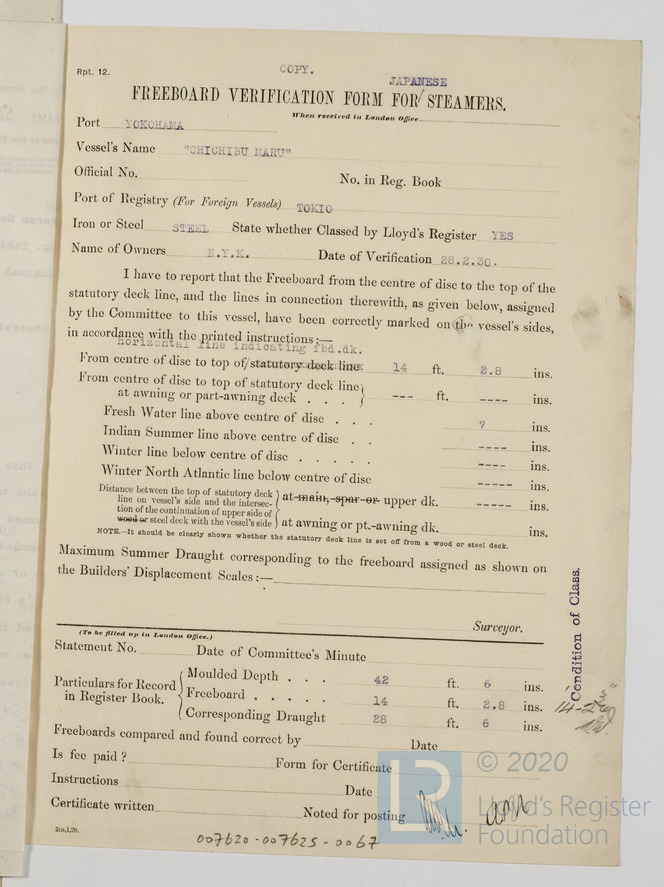 Rpt. 12.
COPY.
JAPANESE
FREEBOARD VERIFICATION FORM FOR/ STEAMERS.
When received in London Office
Port YOKOHAMA
Vessel's Name "CHICHIBU MARU"
Official No. No. in Reg. Book
Port of Registry (For Foreign Vessels) TOKIO
Iron or Steel STEEL State whether Classed by Lloyd's Register YES
Name of Owners N.Y.K. Date of Verification 28.2.30.
I have to report that the Freeboard from the centre of disc to the top of the
statutory deck line, and the lines in connection therewith, as given below, assigned
by the Committee to this vessel, have been correctly marked on the vessel's sides,
in accordance with the printed instructions:—
horizontal line indicating fbd.dk.
From centre of disc to top of/statutory deck line 14 ft. 2.8 ins.
From centre of disc to top of statutory deck line
at awning or part-awning deck . . . --- ft. ---- ins.
Fresh Water line above centre of disc . . . 7 ins.
Indian Summer line above centre of disc . . ---- ins.
Winter line below centre of disc . . . . . ---- ins.
Winter North Atlantic line below centre of disc ----- ins.
Distance between the top of statutory deck
line on vessel's side and the intersec-
tion of the continuation of upper side of
wood or steel deck with the vessel's side
at main, spar or upper dk. ----- ins.
at awning or pt.-awning dk. ins.
NOTE.—It should be clearly shown whether the statutory deck line is set off from a wood or steel deck.
Maximum Summer Draught corresponding to the freeboard assigned as shown on
the Builders' Displacement Scales:—
Surveyor.
(To be filled up in London Office.)
Statement No. Date of Committee's Minute
Particulars for Record
in Register Book.
Moulded Depth . . . 42 ft. 6 ins.
Freeboard . . . . . 14 ft. 2.8 ins.
Corresponding Draught 28 ft. 6 ins.
Condition of Class.
Freeboards compared and found correct by Date
Is fee paid? Form for Certificate
Instructions Date
Certificate written Noted for posting
2m,1,29.
007620-007625-0067
LR
© 2020
Lloyd's Register
Foundation